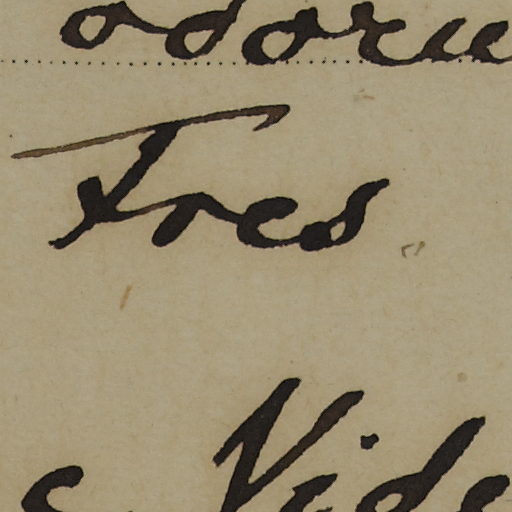 odoru
Tres
s. Vide